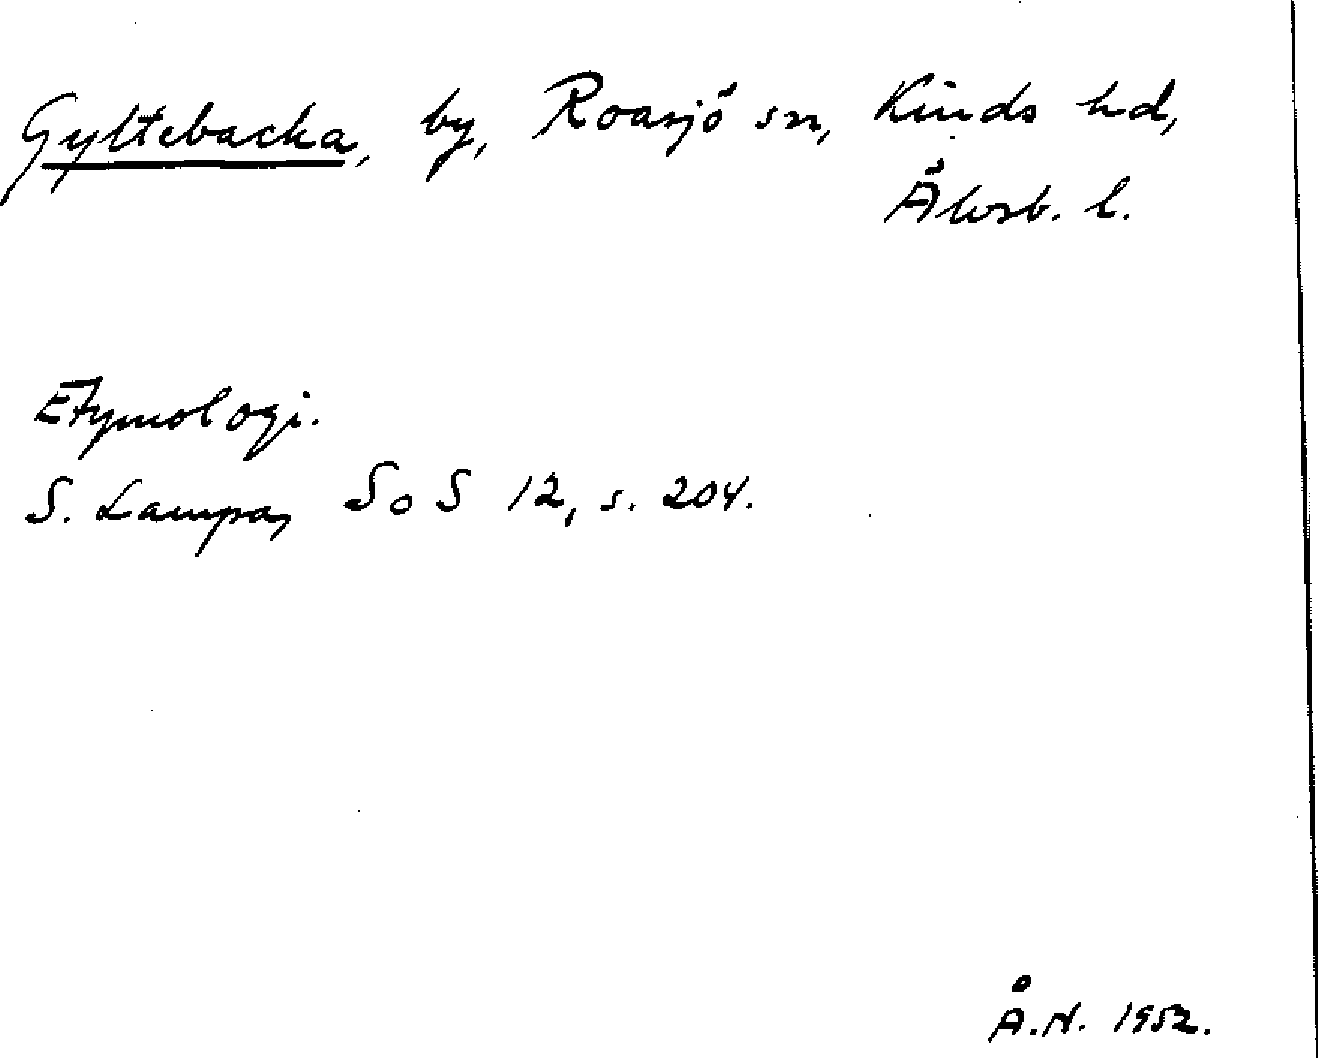 Gyltebacka, by, Roasjö sn, Kinds hd,
Älvsb. l.
Etymologi.
S. Lampa, SoS 12, s. 204.
Å.N. 1952.